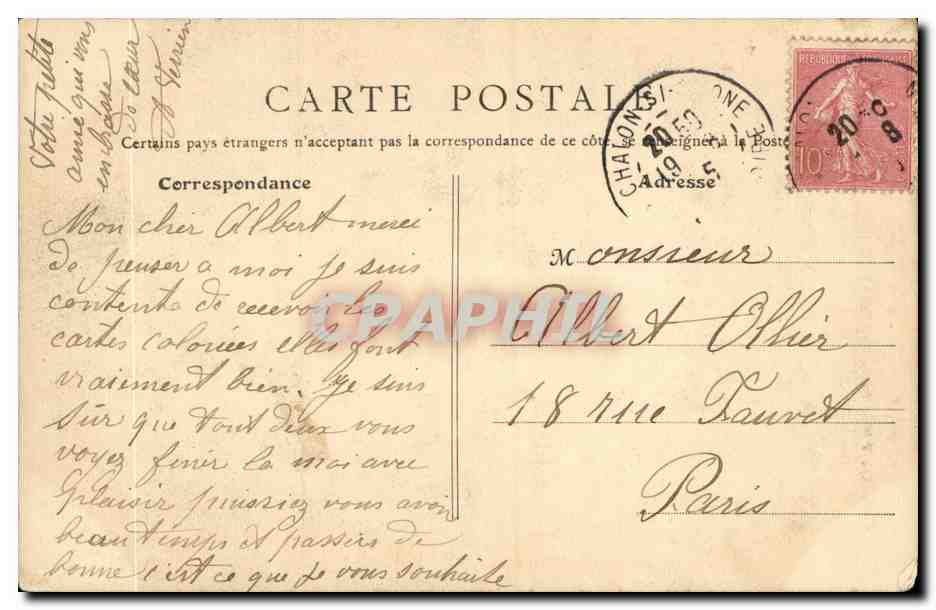 CARTE POSTALE
Certains pays étrangers n'acceptant pas la correspondance de ce côté, se renseigner à la Poste
Correspondance
Mon cher Albert merci
de penser a moi je suis
contente de recevoir les
cartes coloriées elles font
vraiement bien. Je suis
sûr que tout deux vous
voyez finir la moi avec
plaisir puissiez vous avoir
beau temps et
bonne c'est ce que je vous souhaite
Votre petite
amie qui vous
embrasse
de cœur
Adresse
Monsieur
Albert Ollier
18 rue Fauvet
Paris
CHALON-S/-SAONE
20
5
REPUBLIQUE FRANÇAISE
10c
20
CPAPHIL